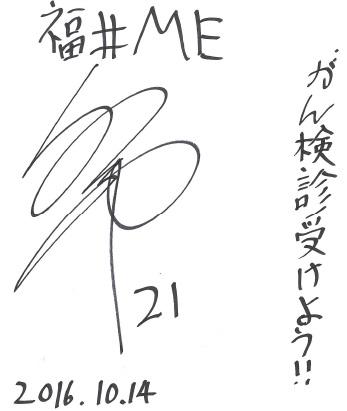 福井ME
21
2016.10.14
がん検診受けよう!!